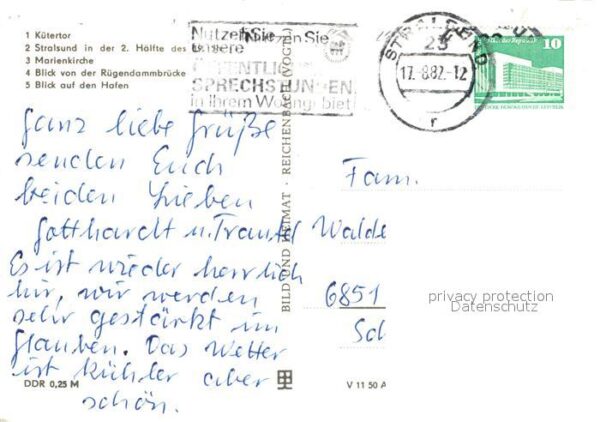 1 Kütertor
2 Stralsund in der 2. Hälfte des
3 Marienkirche
4 Blick von der Rügendammbrücke
5 Blick auf den Hafen
Nutzen Sie
unsere
ÖFFENTLICHEN
SPRECHSTUNDEN
in Ihrem Wohngebiet
STRALSUND
23
17.-8.82.-12
r
10
Palast der Republik
DEUTSCHE DEMOKRATISCHE REPUBLIK
Ganz liebe Grüße
senden Euch
beiden Lieben
Gotthardt u. Trautel Walde
Es ist wieder herrlich
hier, wir werden
sehr gestärkt im
Glauben. Das Wetter
ist kühler aber
schön.
BILD UND HEIMAT · REICHENBACH (VOGTL)
Fam.
6851
Sch
privacy protection
Datenschutz
DDR 0,25 M
V 11 50 A